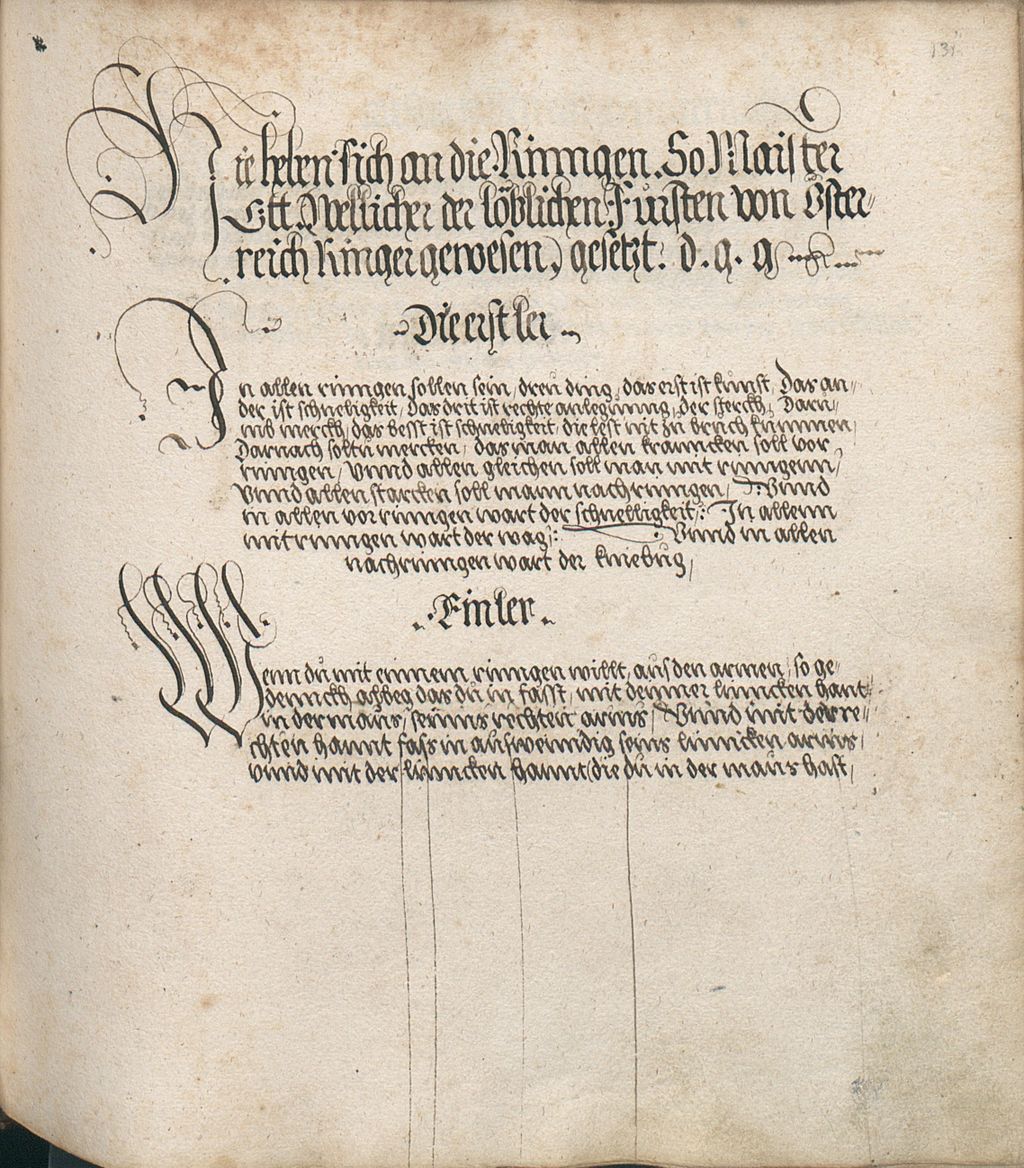 131.
Hie heben sich an die Ringen. So Maister
Ott Wellicher der löblichen Fürsten von Öster-
reich Ringer gewesen, gesetzt. d. g. g
Die erst ler
In allen ringen sollen sein, dreu ding, das erst ist kunst, Das an-
der ist schnelligkeit, das drit ist rechte anlegung, der sterckh, Daru-
mb merckh, das besst ist schnelligkeit, die lest nit zu bruch kummen,
Darnach soltu mercken, das man allen krancken soll vor
ringen, Vnnd allen gleichen soll man mit ringenn,
Vnnd allen starcken soll mann nach ringen, Vnnd
in allen vor ringen wart der schnelligkeit, In allenn
mit ringen wart der wag, Vnnd in allen
nach ringen wart der kniebug,
Ein ler
Wenn du mit einnem ringen willt, aus den armen, so ge-
dennckh allweg das du in fasst, mit deinner linncken hant
in der maus, seinns rechten arms, Vnnd mit der re-
chten hannt fass in auswenndig seins linncken arms,
vnnd mit der linncken hannt die du in der maus hast,